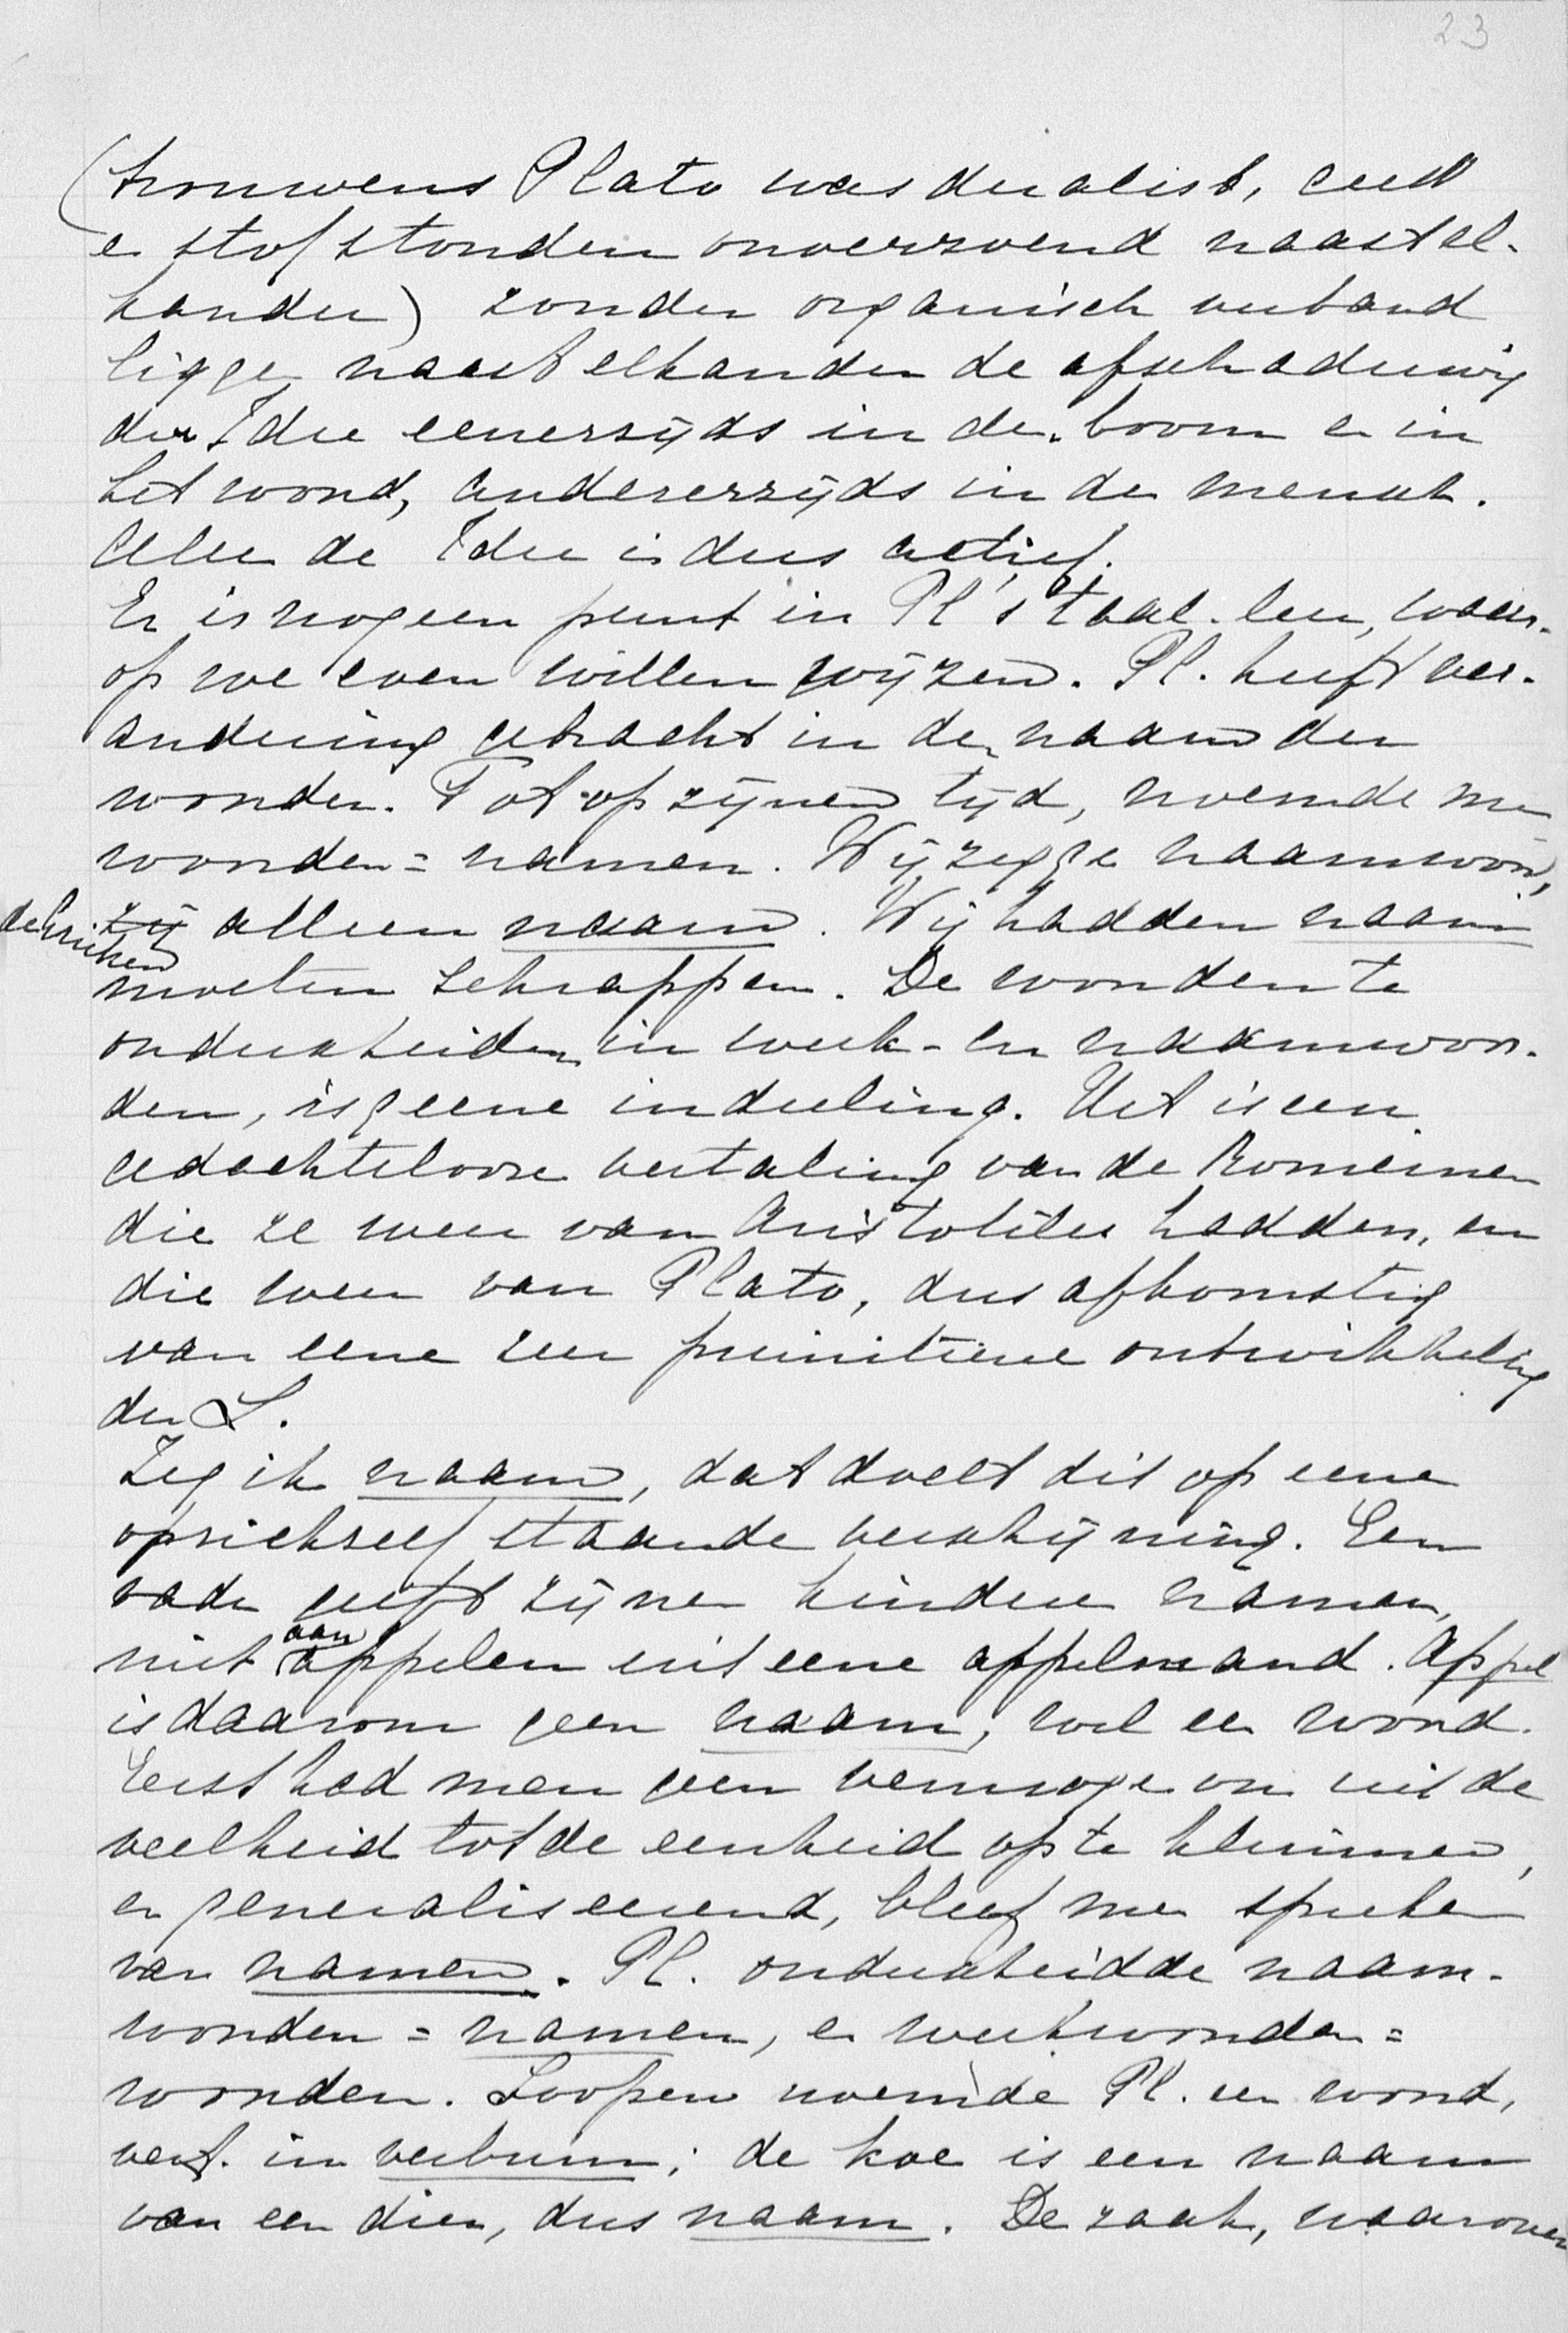 23
(trouwens Plato was dualist, ceeuw
en stof stonden onverzoend naast el-
kander) zonder organisch verband
liggen naast elkander de afschaduwing
der Idee eenerzijds in den boom en in
het woord, andererzijds in den mensch.
Alleen de Idee is dus actief.
Er is nog een punt in Pl's taal-leer, waar-
op we even willen wijzen. Pl. heeft ver-
andering gebracht in den naam der
woorden. Tot op zijnen tijd, noemde men
woorden = namen. Wij zeggen naamwoord,
de Grieken zij alleen naam. Wij hadden naam
moeten schrappen. De woorden te
onderscheiden in werk- en naamwoor-
den, is geene indeeling. Het is een
gedachtelooze vertaling van de Romeinen
die ze weer van Aristoteles hadden, en
die weer van Plato, dus afkomstig
van eene zeer primitieve ontwikkeling
der L.
Zeg ik naam, dat doelt dit op eene
opzichzelf staande verschijning. Een
vader geeft zijnen kinderen namen,
niet aan appelen uit eene appelmand. Appel
is daarom geen naam, wel een woord.
Eerst had men geen vermogen om uit de
veelheid tot de eenheid op te klimmen,
en generaliseerend, bleef men spreken
van namen. Pl. onderscheidde naam-
woorden = namen, en werkwoorden =
woorden. Loopen noemde Pl. een woord,
vert. in verbum; de koe is een naam
van een dier, dus naam. De zaak, waarover